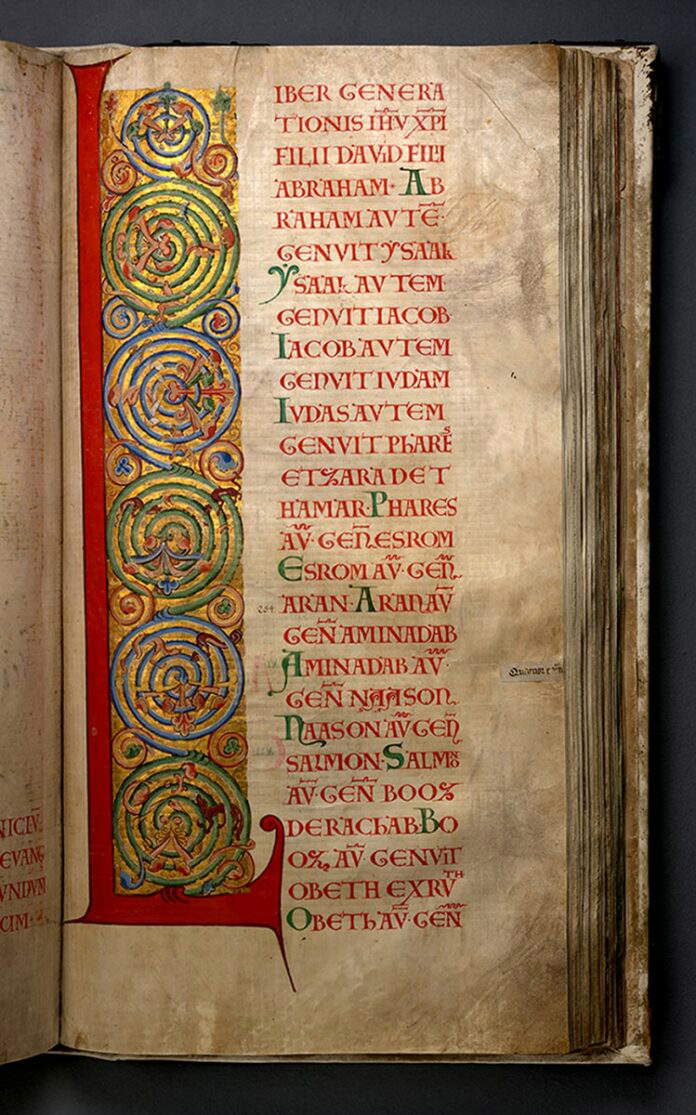 NICIU̅
EVANG
UNDUM
CIM
LIBER GENERA
TIONIS IH̅V XP̅I
FILII DAVID FILII
ABRAHAM· AB
RAHAM AVTE̅·
GENVIT YSAAK
YSAAK AVTEM
GENVIT IACOB
IACOB AVTEM
GENVIT IVDAM
IVDAS AVTEM
GENVIT PHARE̅S
ET ZARA DE T
HAMAR· PHARES
AV̅· GEN̅ ESROM
ESROM AV̅· GEN̅
264 ARAN· ARAN AV̅
GEN̅ AMINADAB
AMINADAB AV̅·
GEN̅ NAASON
NAASON AV̅ GEN̅
SALMON· SALMO̅
AV̅· GEN̅ BOOZ
DE RACHAB· BO
OZ, AV̅· GENVIT
OBETH EX RVTH
OBETH AV̅· GEN̅